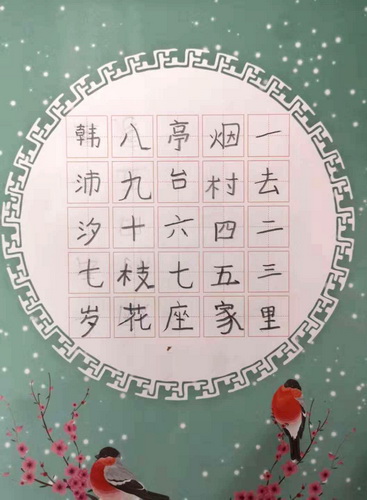 一去二三里
烟村四五家
亭台六七座
八九十枝花
韩沛汐七岁